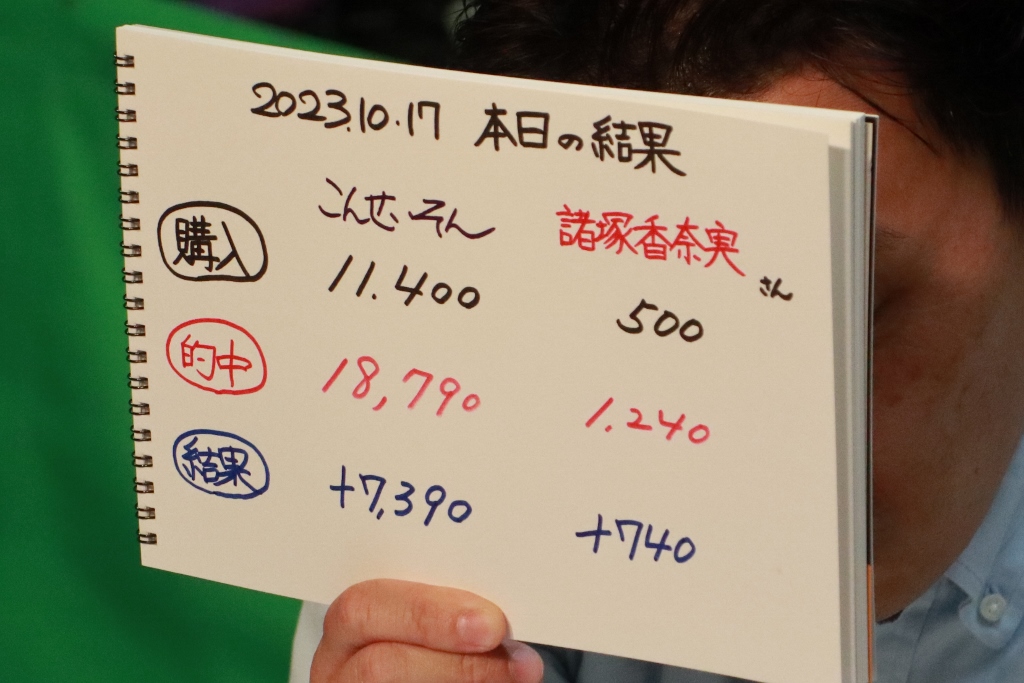 2023.10.17 本日の結果
こんせ、そん 諸塚香奈実さん
購入 11.400 500
的中 18,790 1.240
結果 +7,390 +740